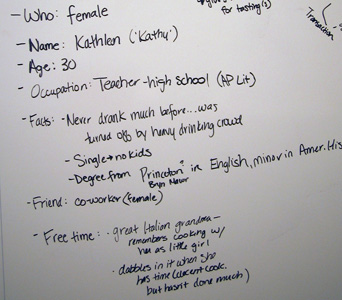 for tasting(s)
Transaction
- Who: female
- Name: Kathlen ('Kathy')
- Age: 30
- Occupation: Teacher - high school (AP Lit)
- Facts: - Never drank much before...was
turned off by heavy drinking crowd
- Single + no kids
- Degree from Princeton? in English, minor in Amer. His
Bryn Mawr
- Friend: co-worker (female)
- Free time: · great Italian grandma -
remembers cooking w/
her as little girl
· dabbles in it when she
has time (decent cook,
but hasn't done much)